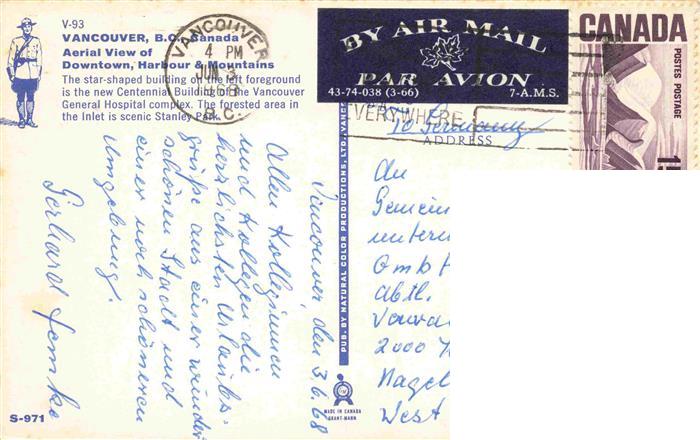 V-93
VANCOUVER, B.C., Canada
Aerial View of
Downtown, Harbour & Mountains
The star-shaped building on the left foreground
is the new Centennial Building of the Vancouver
General Hospital complex. The forested area in
the Inlet is scenic Stanley Park.
VANCOUVER
4 PM
JUN 3
1968
B.C.
BY AIR MAIL
PAR AVION
43-74-038 (3-66) 7-A.M.S.
CANADA
POSTES POSTAGE
EVERYWHERE
To Germany
ADDRESS
Vancouver den 3.6.68
Allen Kolleginnen
und Kollegen die
herzlichsten Urlaubs-
grüße aus einer wunder
schönen Stadt und
einer noch schöneren
Umgebung.
Gerhard
An
Gemein
untern
GmbH
Abtl.
Verwa
2000
Nagel
West
PUB. BY NATURAL COLOR PRODUCTIONS, LTD., VANC
MADE IN CANADA
GRANT-MANN
S-971